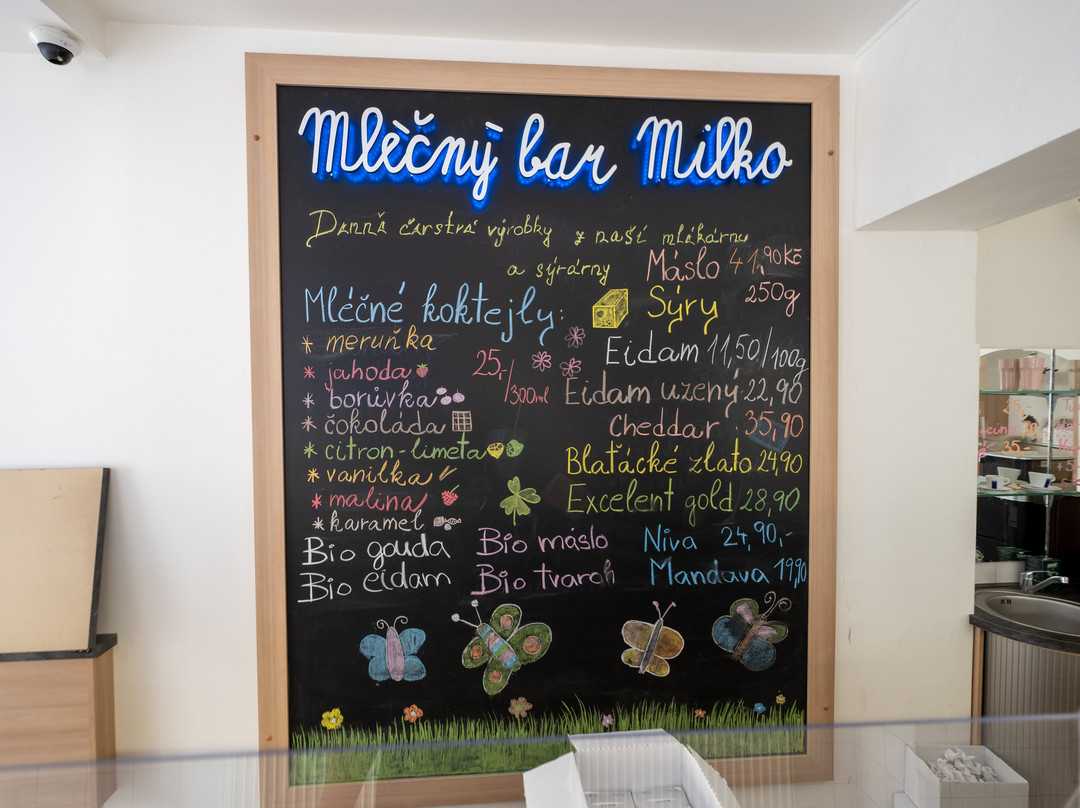 Mlèčný bar Milko
Denně čerstvé výrobky z naší mlékárny
a sýrárny
Máslo 41,90 Kč
250g
Mléčné koktejly:
* meruňka
* jahoda
* borůvka
* čokoláda
* citron-limeta
* vanilka
* malina
* karamel
25,-/300ml
Sýry
Eidam 11,50/100g
Eidam uzený 22,90
Cheddar 35,90
Blaťácké zlato 24,90
Excelent gold 28,90
Niva 24,90,-
Mandava 19,90
Bio gouda
Bio eidam
Bio máslo
Bio tvaroh